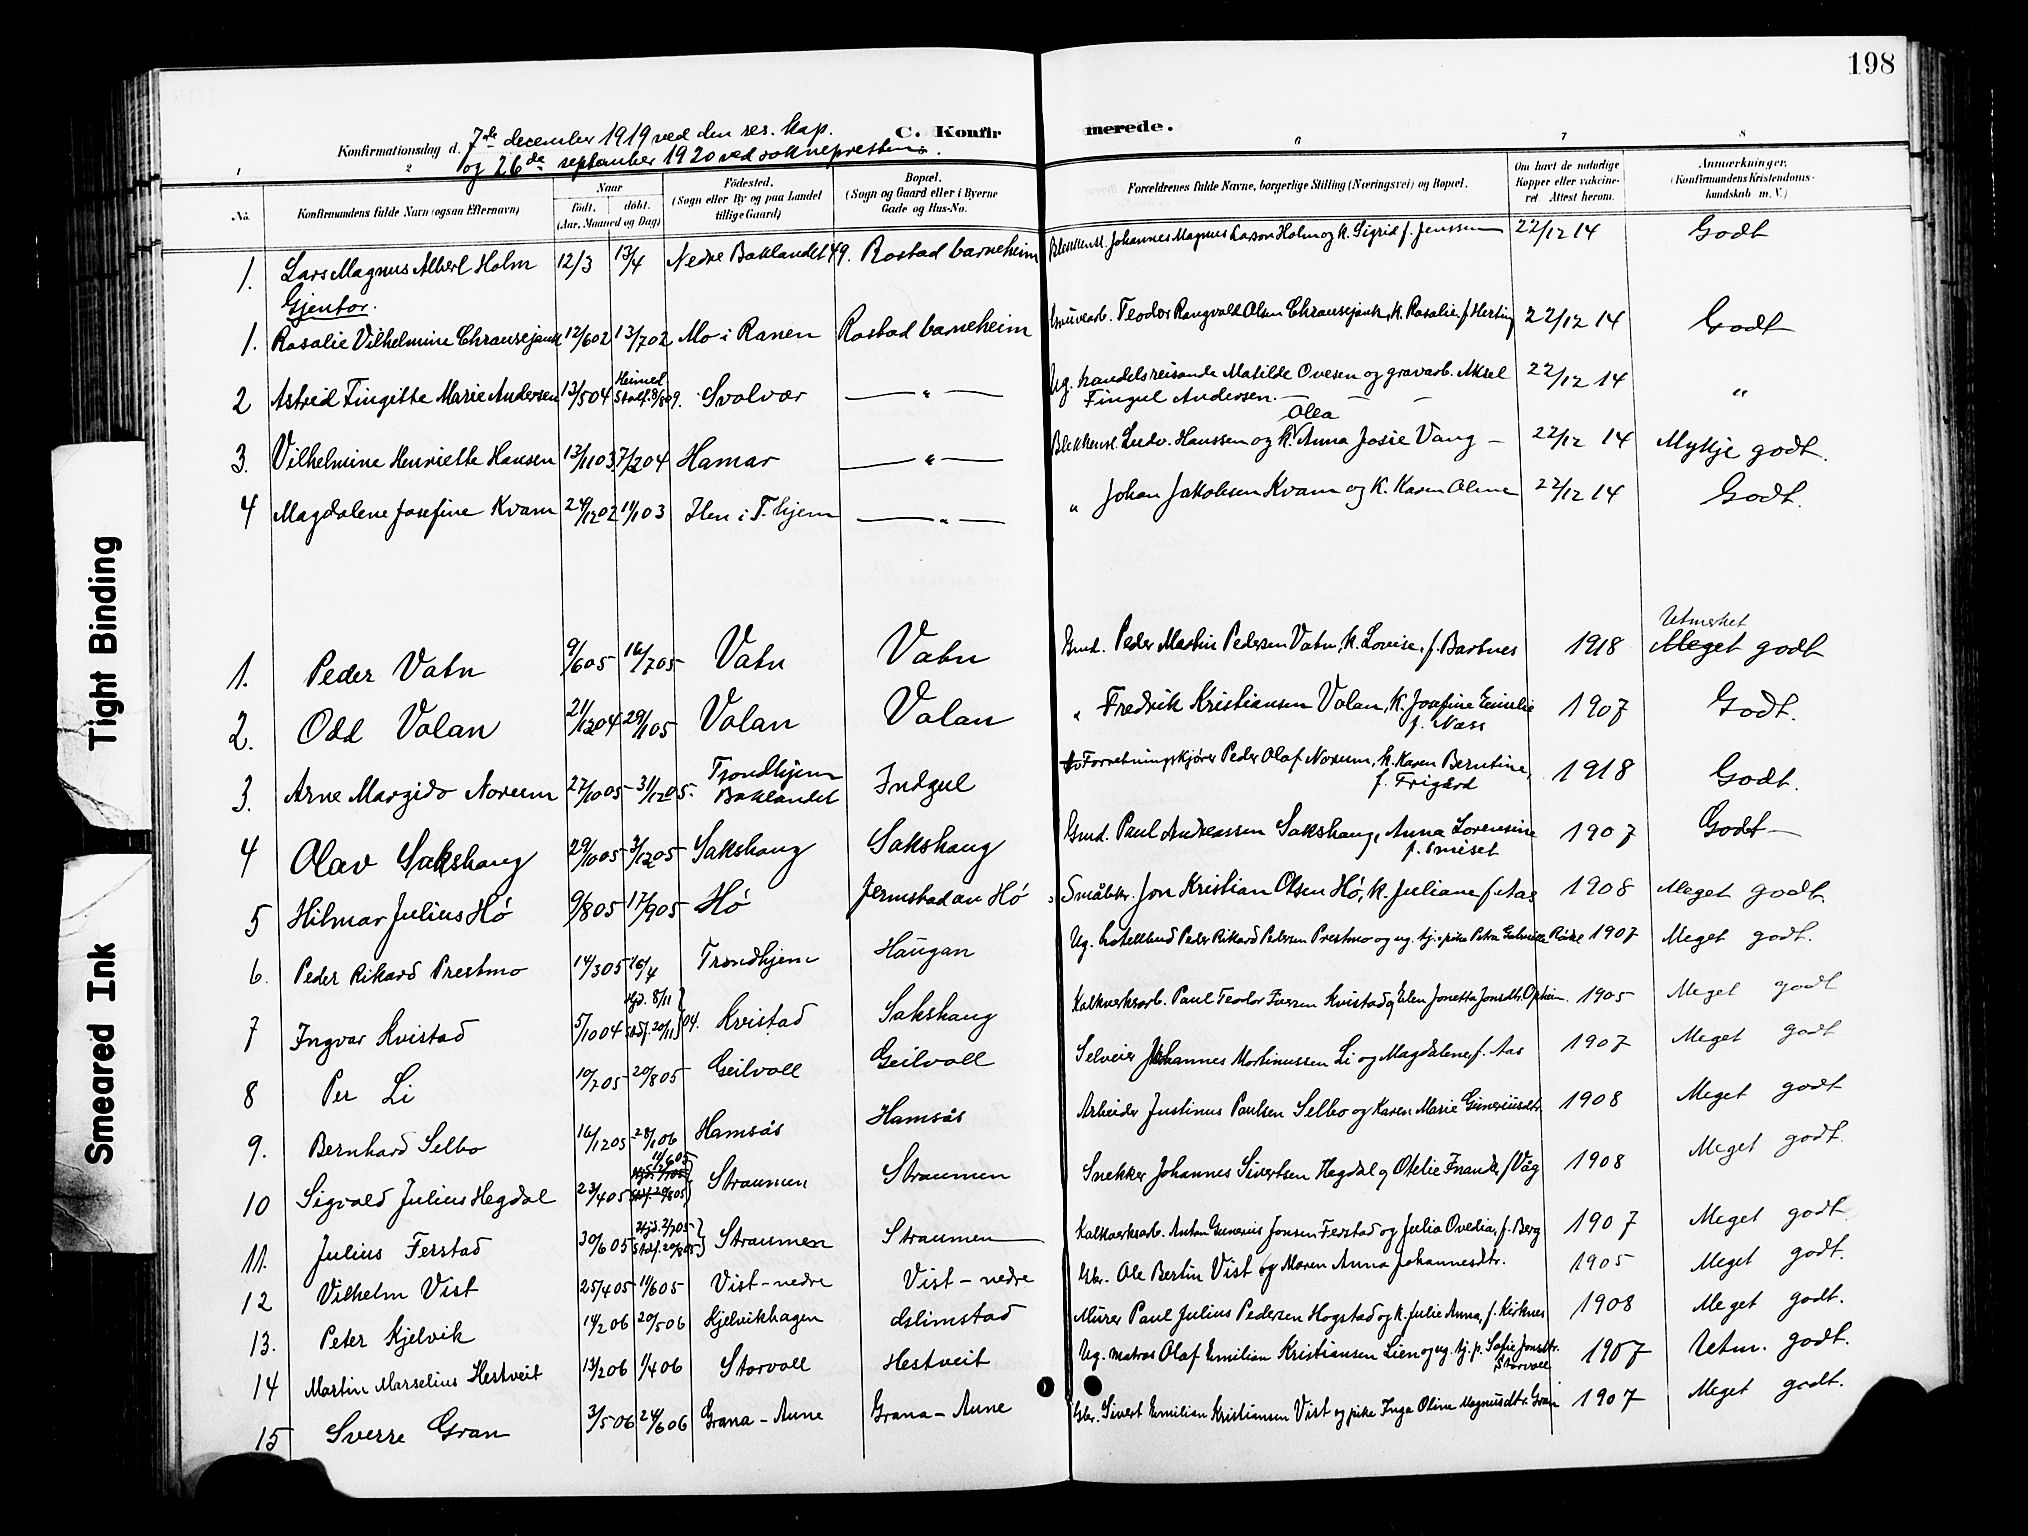 198
C. Konfirmerede.
Konfirmationsdag d. 7de december 1919 ved den res. kap.
og 26de september 1920 ved soknepresten.
1 2 6 7 8
No. Konfirmandens fulde Navn (ogsaa Efternavn) Naar født. døbt. (Aar, Maaned og Dag) Fødested. (Sogn eller By og paa Landet tillige Gaard) Bopæl. (Sogn og Gaard eller i Byerne Gade og Hus-No. Forældrenes fulde Navne, borgerlige Stilling (Næringsvei) og Bopæl. Om havt de naturlige Kopper eller vakcineret. Attest herom. Anmærkninger. (Konfirmandens Kristendomskundskab m. V.)
1. Lars Magnus Albert Holm 12/3 13/4 Nedre Baklandet 49. Rostad barneheim Blekkensl. Johannes Magnus Larson Holm og k. Sigrid f. Jenssen 22/12 14 Godt
Gjentor.
1. Rosalie Vilhelmine Chransejank 12/6 02 13/7 02 Mo i Ranen Rostad barneheim Gruvearb. Teodor Rangvald Olsen Chransejank, k. Rosalie f. Herting 22/12 14 Godt
2 Astrid Fingitte Marie Andersen 13/5 04 Heimed. Stadf. 8/8 09. Svolvær — „ — Ug. handelsreisande Matilde Ovesen og gravarb. Aksel Fingul Andersen. — — — 22/12 14 „
3. Vilhelmine Henriette Hansen 13/11 03 7/2 04 Hamar — „ — Blekkensl. Ludv. Hanssen og k. Olea Anna Josie Vang — 22/12 14 Mykje godt.
4 Magdalene Josefine Kvam 24/12 02 11/1 03 Ilen i T.hjem — „ — „ Johan Jakobsen Kvam og k. Karen Oline 22/12 14 Godt.
1. Peder Vatn 9/6 05 16/7 05 Vatn Vatn Gmd. Peder Martin Pedersen Vatn, k. Lovise, f. Bartnes 1918 Utmerket Meget godt
2. Odd Volan 21/12 04 29/1 05 Volan Volan „ Fredrik Kristiansen Volan, k. Josefine Emilie f. Næss 1907 Godt.
3. Arne Margido Norum 27/10 05 31/12 05. Trondhjem Baklandet Indgul Forretningskjører Peder Olaf Norum, k. Karen Berntine, f. Frigård 1918 Godt.
4 Olav Sakshaug 29/10 05 3/12 05 Sakshaug Sakshaug Gmd. Paul Andreassen Sakshaug, Anna Lorensine f. Småset 1907 Godt —
5 Hilmar Julius Hó 9/8 05 17/9 05 Hó Jermstad av Hó Småbr. Jon Kristian Olsen Hó, k. Juliane f. Aas 1908 Meget godt
6. Peder Rikard Prestmo 14/3 05 16/4 Trondhjem Haugan Ug. hotellbud Peder Rikard Pedersen Prestmo og ug. tj. pike Petra 1907 Meget godt.
7 Ingvar Kvistad 5/10 04 Hjd. 8/11 Stdf. 20/11 04. Kvistad Sakshaug Kalkverksarb. Paul Teodor Iversen Kvistad og Elen Jonetta Jonsdtr. Opheim. 1905 Meget godt
8 Per Li 10/7 05 20/8 05 Geilvoll Geilvoll Selveier Johannes Mortinussen Li og Magdalene f. Aas 1907 Meget godt
9. Bernhard Selbo 16/12 05 28/1 06 Hamsås Hamsås Arbeider Justinus Paulsen Selbo og Karen Marie Guneriusdtr. 1908 Meget godt
10 Sigvald Julius Hegdal 23/4 05 11/6 05 Straumen Straumen Snekker Johannes Sivertsen Hegdal og Otelie f. Våg 1908 Meget godt.
11. Julius Ferstad 30/6 05 Hjd. 2/7 05 Stdf. 20/8 05 Straumen Straumen Kalkverksarb. Anton Gunerius Jonsen Ferstad og Julia Ovedia, f. Berg 1907 Meget godt.
12 Vilhelm Vist 25/4 05 11/6 05 Vist-nedre Vist-nedre Gbr. Ole Bertin Vist og Maren Anna Johannesdtr. 1905 Meget godt.
13. Peter Kjelvik 14/2 06 20/5 06 Kjelvikhagen Aslimstad Murer Paul Julius Pedersen Hogstad og k. Julie Anna, f. Kirknes 1908 Meget godt.
14 Martin Marselius Hestveit 13/2 06 1/4 06 Storvoll Hestveit Ug. matros Olaf Emilian Kristiansen Lien og ug. tj. p. Sofie Jonsdtr. Storvoll 1907 Utm. godt.
15 Sverre Gran 3/5 06 24/6 06 Grana-Aune Grana-Aune Gbr. Sivert Emilian Kristiansen Vist og pike Inga Oline Magnusdtr. Gran 1907 Meget godt.
Tight Binding
Smeared Ink